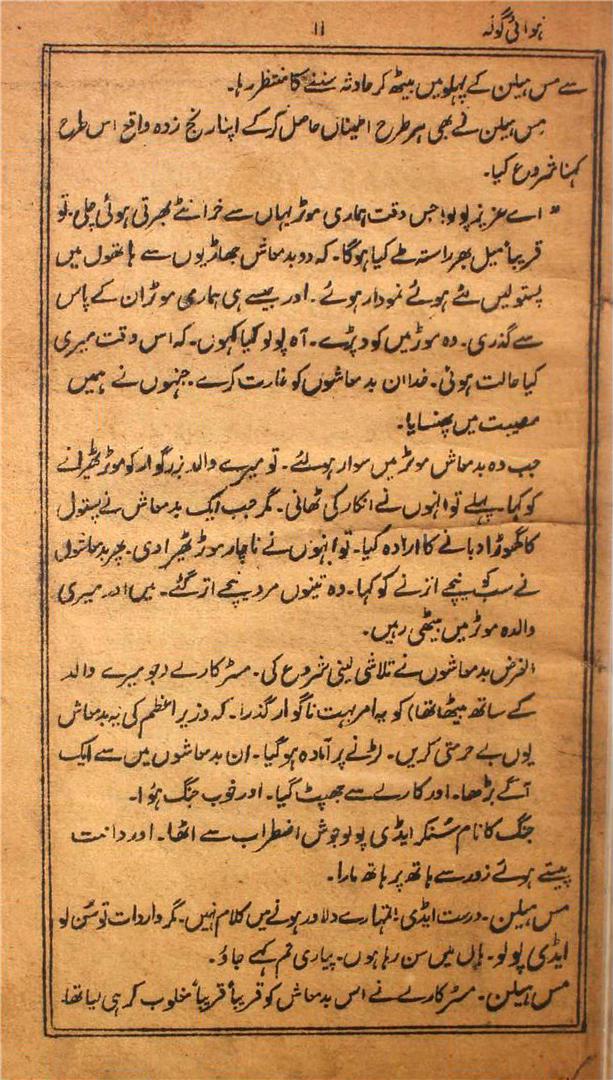 ہوائی گولہ
۱۱
سے مس ہیلن کے پہلو میں بیٹھ کر حادثہ سننے کا منتظر رہا۔
مس ہیلن نے بھی ہر طرح اطمینان حاصل کرکے اپنا رنج زدہ واقع اس طرح
کہنا شروع کیا۔
" اے عزیز پولو! جس وقت ہماری موٹر یہاں سے خراٹے بھرتی ہوئی چلی۔ تو
قریباً میل بھر راستہ طے کیا ہوگا۔ کہ دو بدمعاش جھاڑیوں سے ہاتھوں میں
پستولیں لئے ہوئے نمودار ہوئے۔ اور جیسے ہی ہماری موٹر ان کے پاس
سے گذری۔ وہ موٹر میں کود پڑے۔ آہ پولو کیا کہوں۔ کہ اس وقت میری
کیا حالت ہوئی۔ خدا ان بدمعاشوں کو غارت کرے۔ جنہوں نے ہمیں
مصیبت میں پھنسایا۔
جب وہ بدمعاش موٹر میں سوار ہولئے۔ تو میرے والد بزرگوار کو موٹر ٹھیرانے
کو کہا۔ پہلے تو انہوں نے انکار کی ٹھانی۔ مگر جب ایک بدمعاش نے پستول
کا گھوڑا دبانے کا ارادہ کیا۔ تو انہوں نے ناچار موٹر ٹھیرا دی۔ پھر بدمعاشوں
نے سب کو نیچے اترنے کو کہا۔ وہ تینوں مرد نیچے اتر گئے۔ میں اور میری
والدہ موٹر میں بیٹھی رہیں۔
الغرض بدمعاشوں نے تلاشی لینی شروع کی۔ مسٹر کارلے (جو میرے والد
کے ساتھ بیٹھا تھا) کو یہ امر بہت ناگوار گذرا۔ کہ وزیر اعظم کی یہ بدمعاش
یوں بے حرمتی کریں۔ لڑنے پر آمادہ ہوگیا۔ ان بدمعاشوں میں سے ایک
آگے بڑھا۔ اور کارلے سے جھپٹ گیا۔ اور خوب جنگ ہوا۔
جنگ کا نام سُنکر ایڈی پولو جوش اضطراب سے اٹھا۔ اور دانت
پیستے ہوئے زور سے ہاتھ پر ہاتھ مارا۔
مس ہیلن۔ درست ایڈی! تمہارے دلاور ہونے میں کلام نہیں۔ مگر واردات تو سُن لو
ایڈی پولو۔ ہاں میں سن رہا ہوں۔ پیاری تم کہے جاؤ۔
مس ہیلن۔ مسٹر کارلے نے اس بدمعاش کو قریباً قریباً مغلوب کر ہی لیا تھا۔